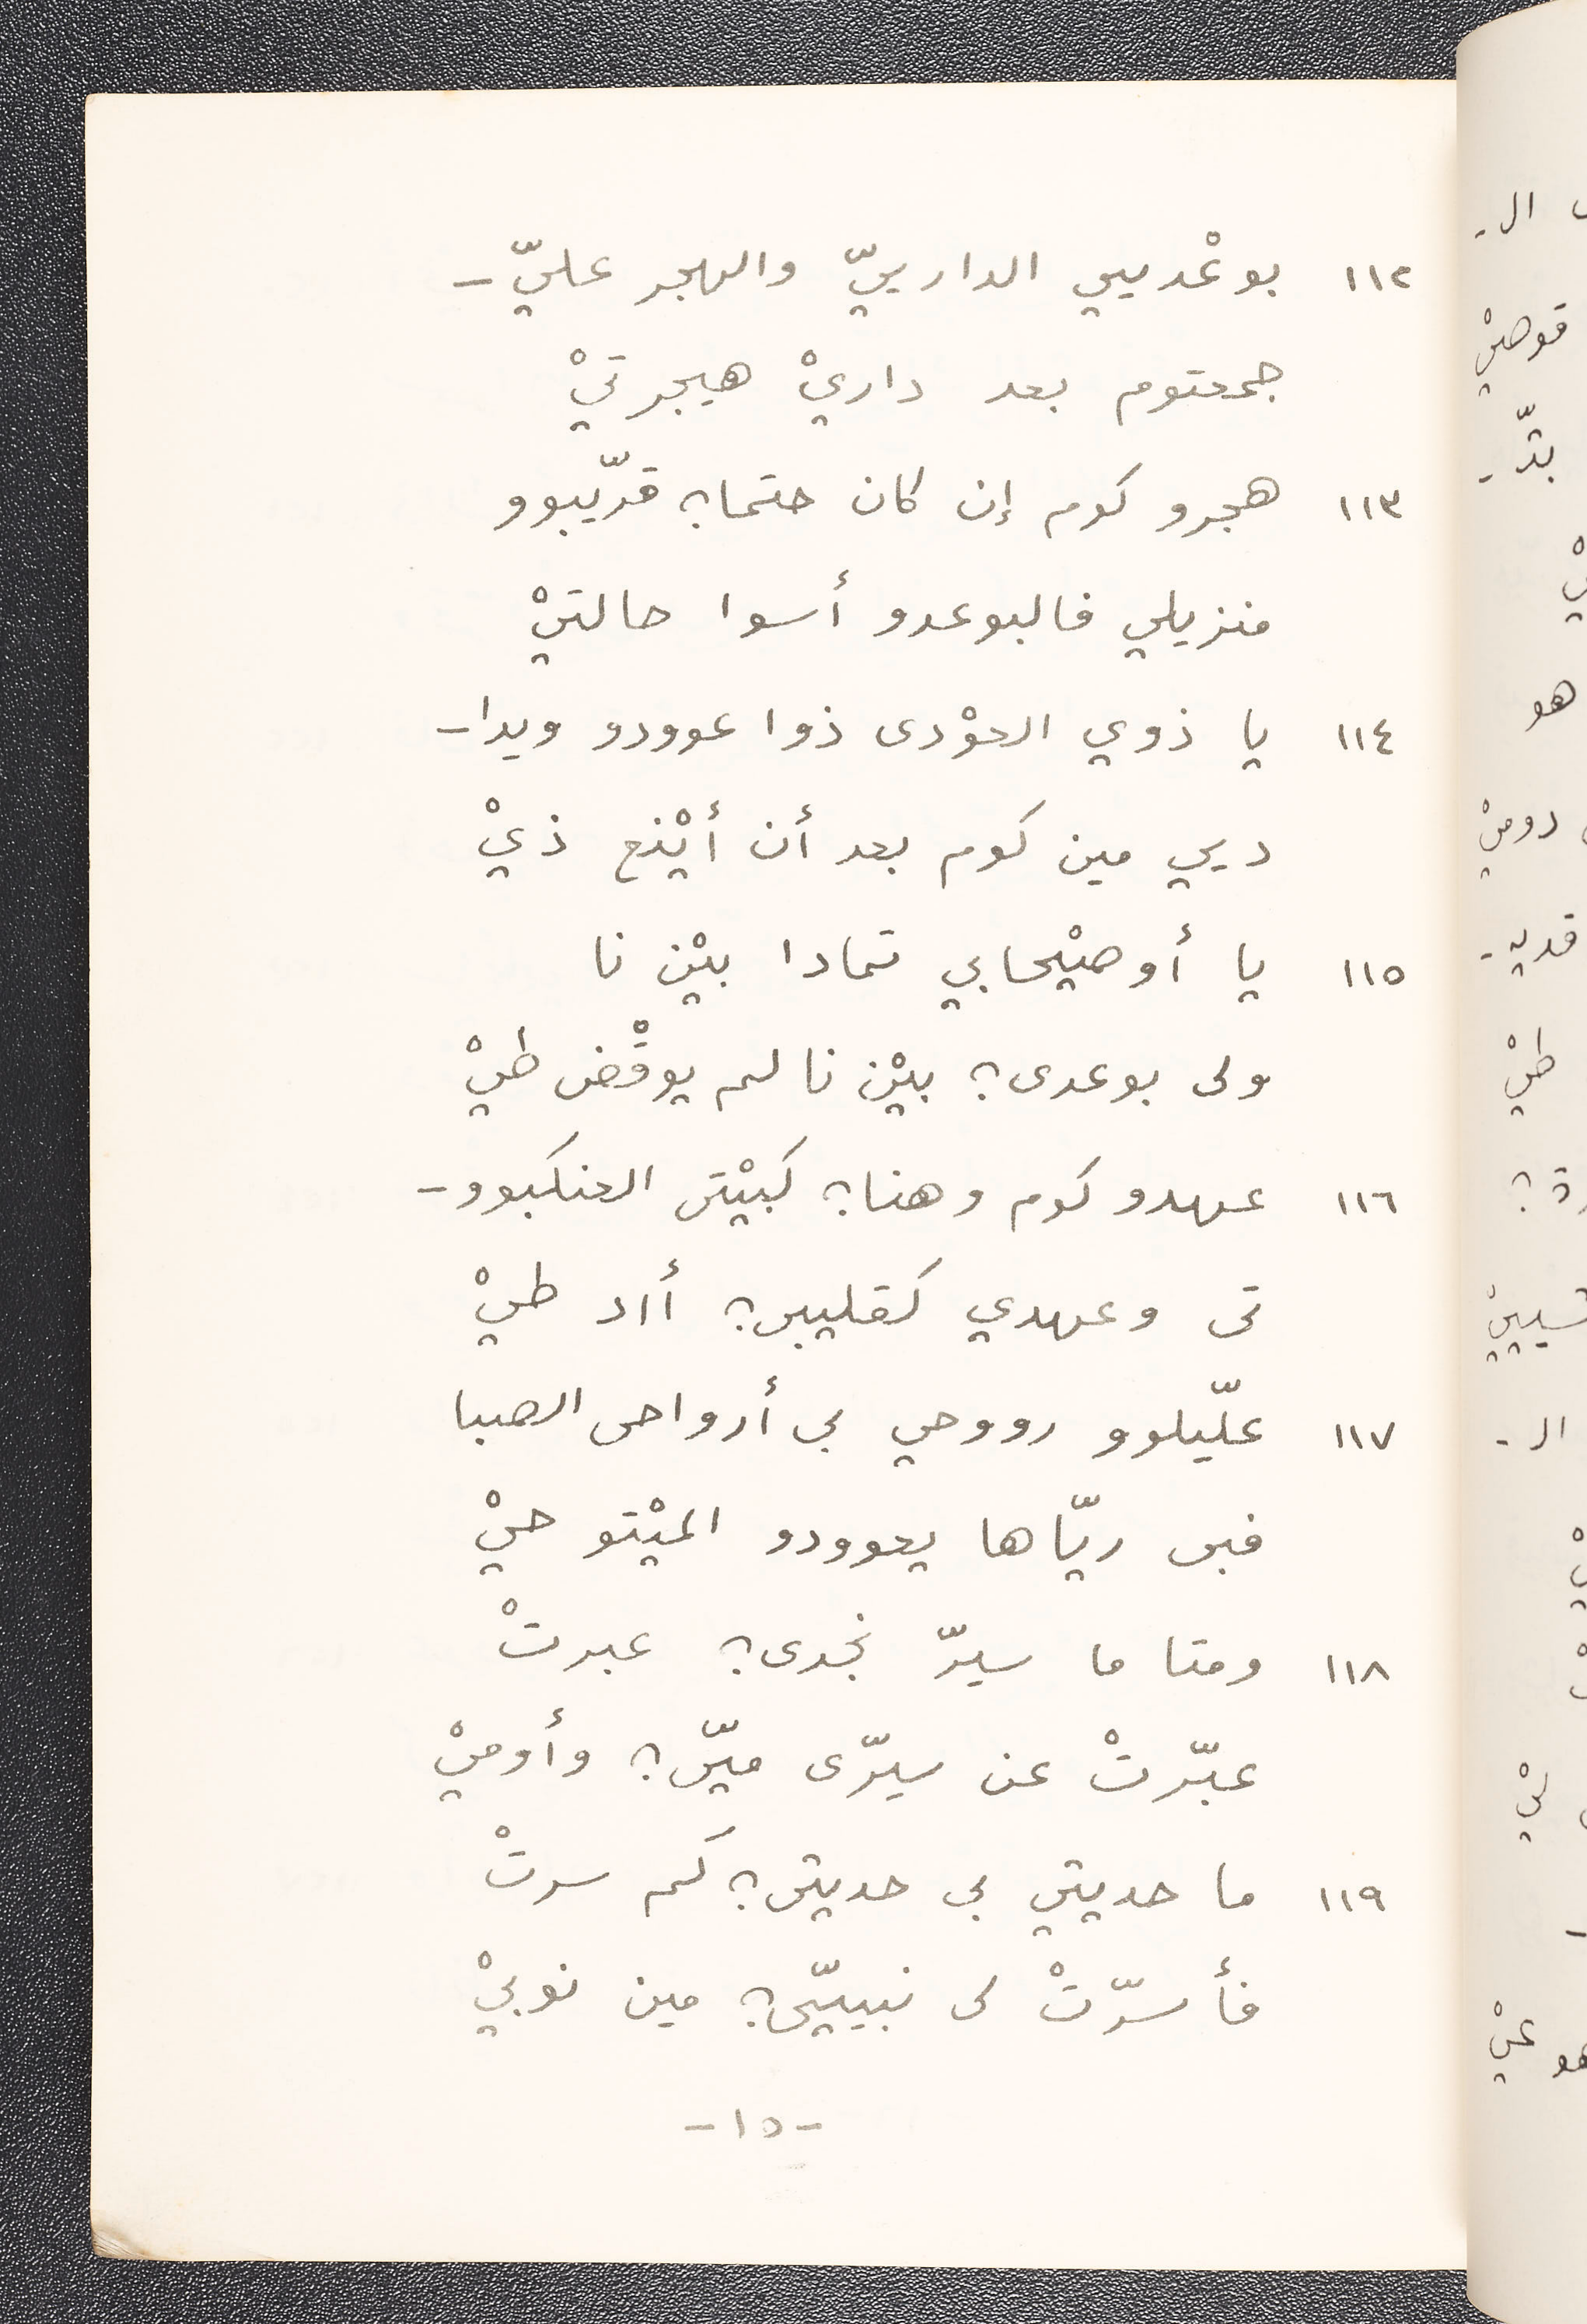 ١١٢ بوعْدييي الداريیّ والهجر عليّ-
جمعتوم بعد داريْ هيجرتيْ
١١٣ هجرو كوم إن كان حتما؟ قرّيبوو
منزيلي فالبوعدو أسوا حالتيْ
١١٤ يا ذوي العوْدى ذوا عوودو ويدا-
ديي مين كوم بعد أن أيْنع ذيْ
١١٥ يا أوصيْحابي تمادا بيْن نا
ولى بوعدى؟ بيْن نا لم يوقْض طيْ
١١٦ عهدو كوم وهنا؟ كبيْتى العنكبوو-
تى وعهدي كقليبى؟ أاد طيْ
١١٧ علّيلوو رووحي بى أرواحى الصبا
فبى ريّاها يعوودو الميْتو حيْ
١١٨ ومتا ما سيرّ نجدى؟ عبرتْ
عبّرتْ عن سيرّى ميّى؟ وأوميْ
١١٩ ما حديتي بى حديتى؟ كم سرتْ
فأسرّتْ لى نبييّى؟ مين نوبيْ
-١٥-
ال-
قوصيْ
بتّر-
هو
دوميْ
طيْ
ال-
ليْ
عيْ